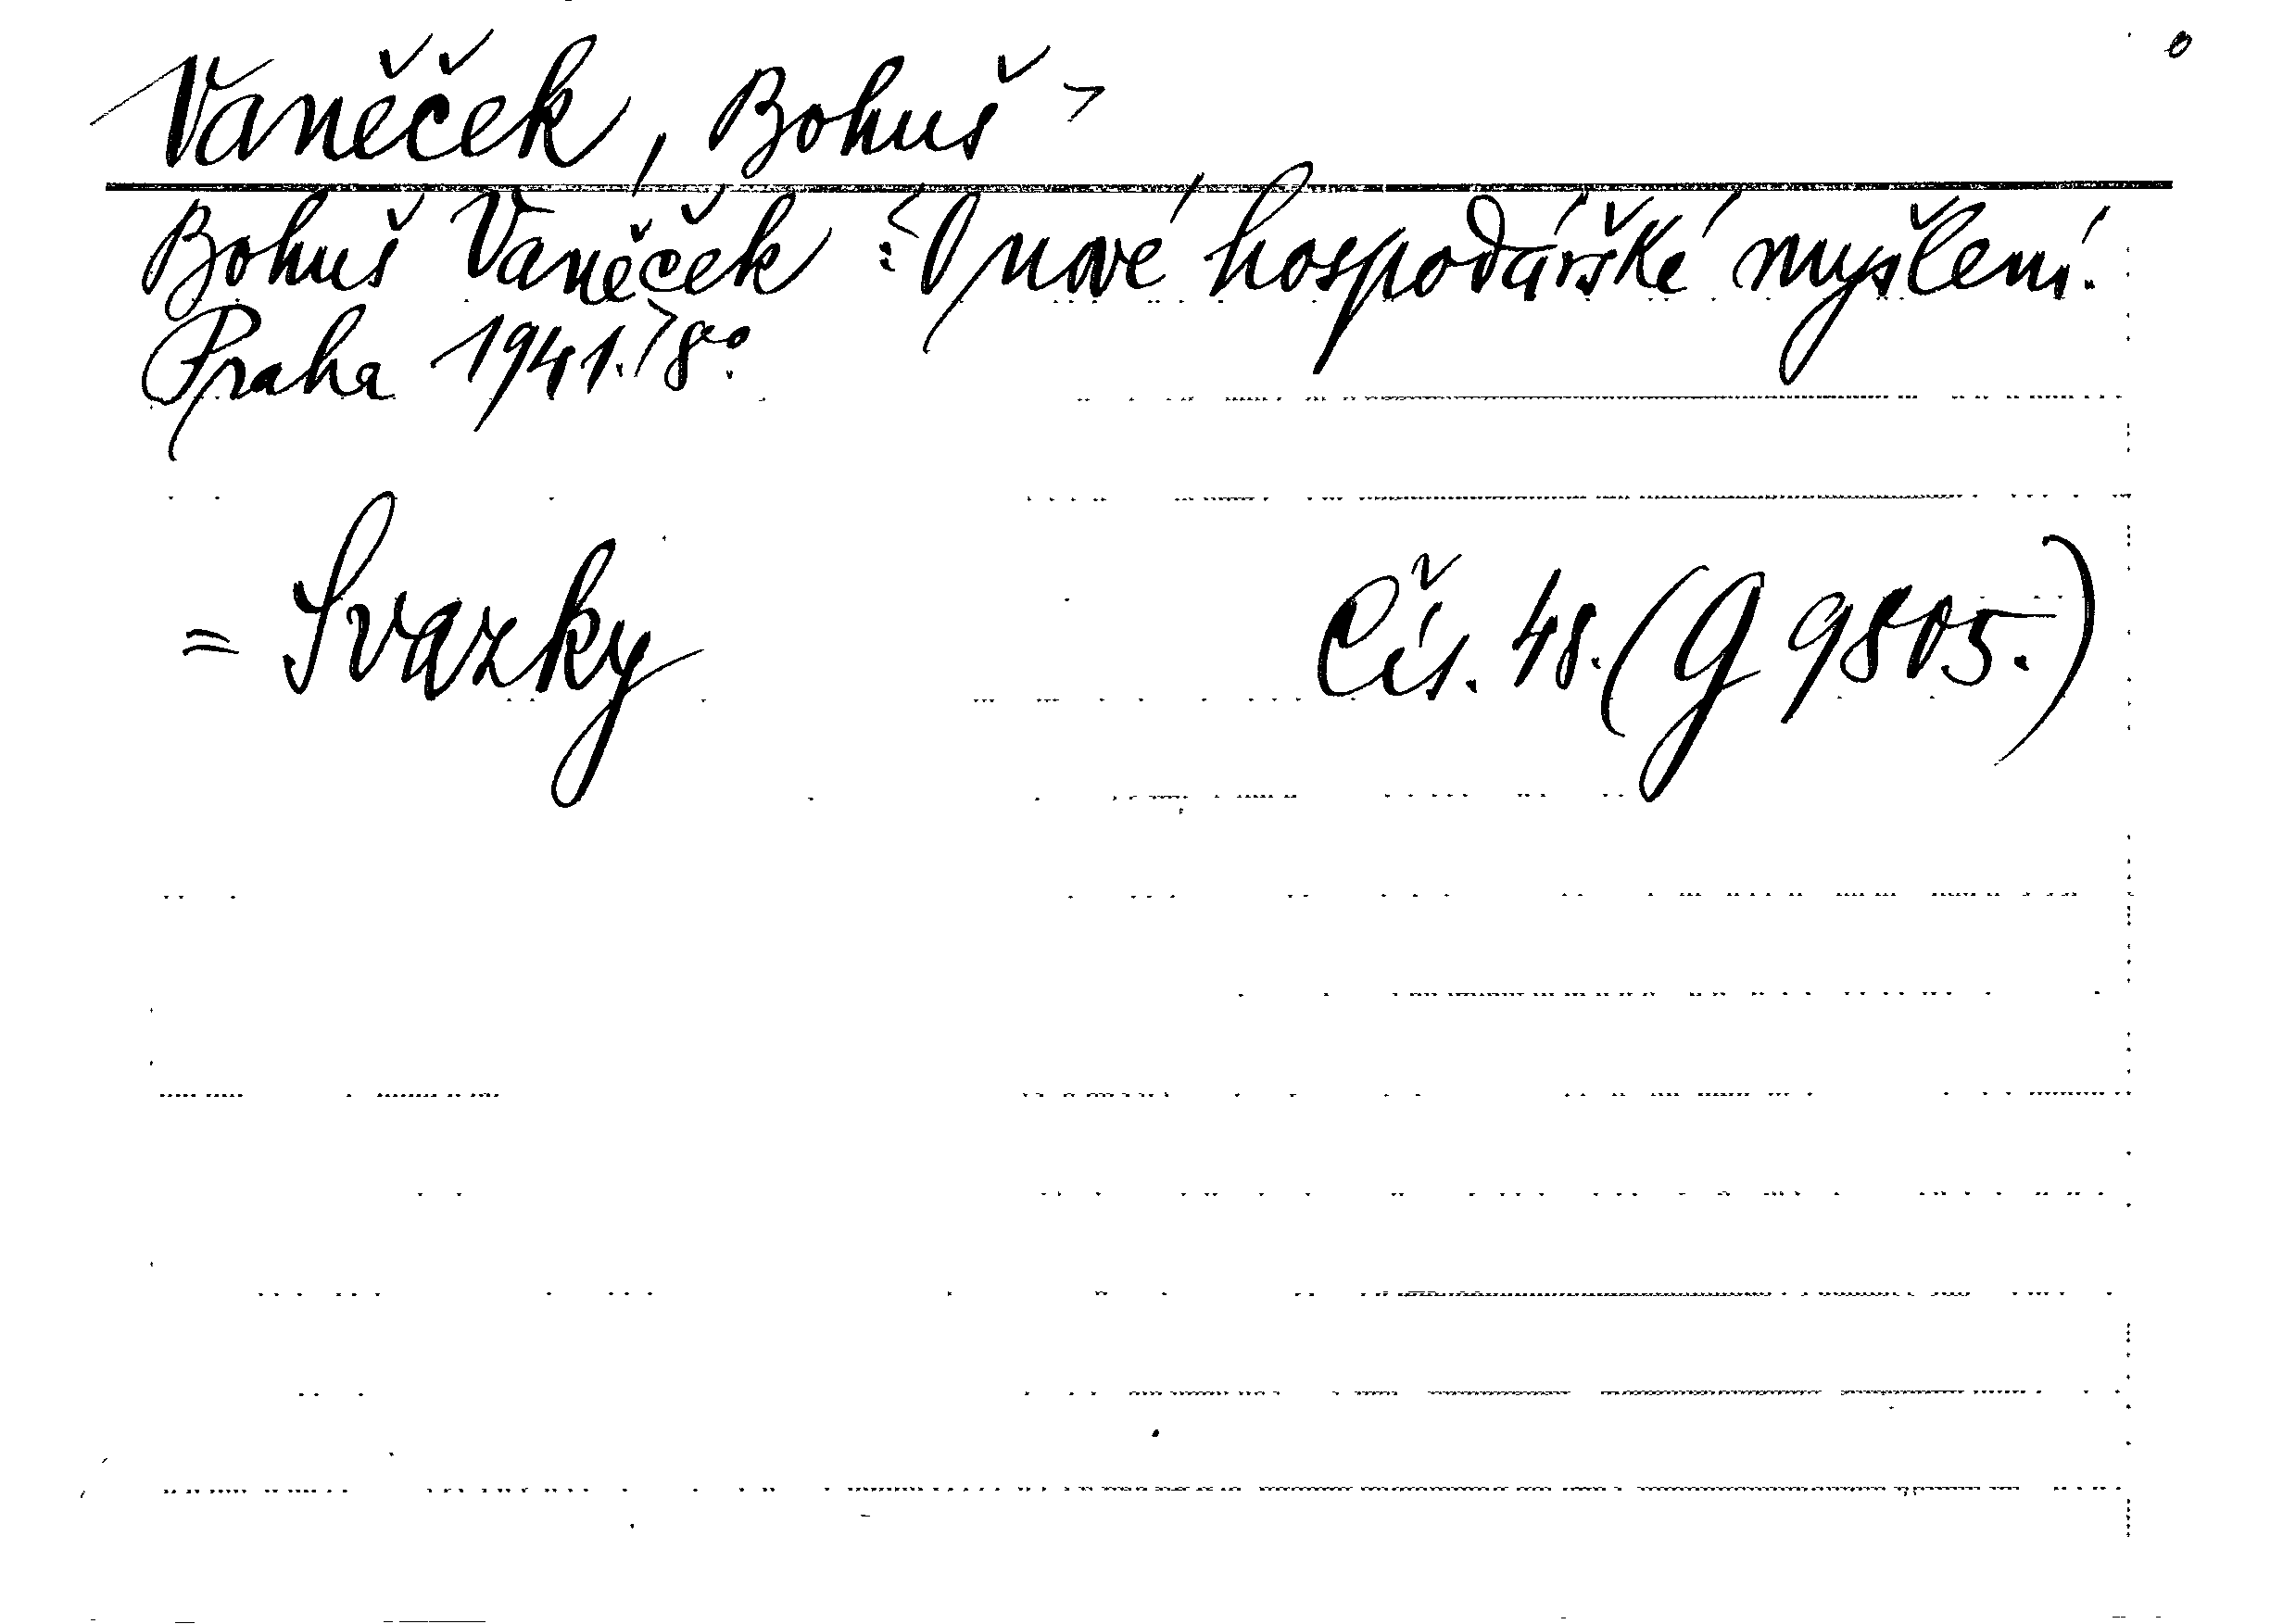 Vaněček, Bohuš
Bohuš Vaněček : O nové hospodářské myšlení.
Praha 1941. 8°.
= Svazky Čís. 48. (G 9805.)